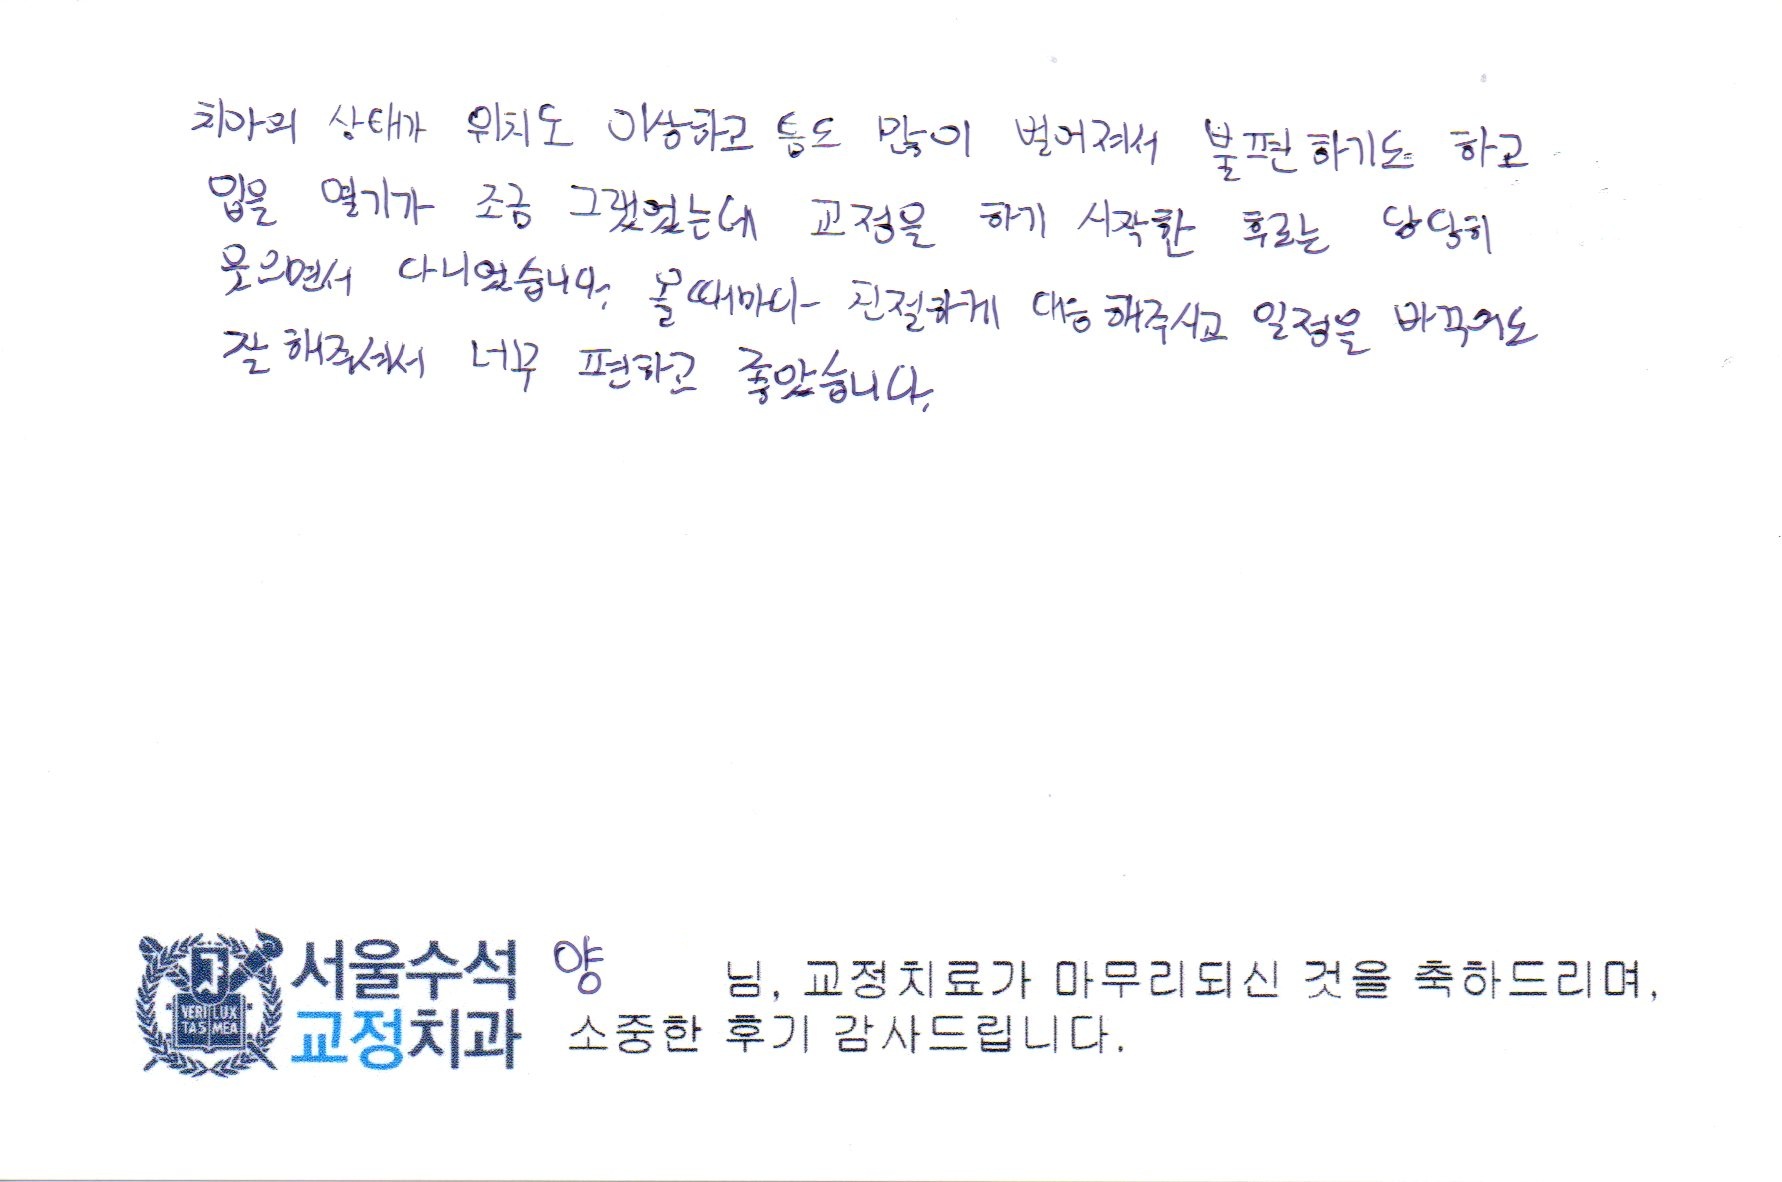 치아의 상태가 위치도 이상하고 틈도 많이 벌어져서 불편하기도 하고
입을 열기가 조금 그랬었는데 교정을 하기 시작한 후로는 당당히
웃으면서 다니었습니다. 올때마다 친절하게 대응해주시고 일정을 바꾸어도
잘해주셔서 너무 편하고 좋았습니다.
VERI LUX
TAS MEA
서울수석
교정치과
양 님, 교정치료가 마무리되신 것을 축하드리며,
소중한 후기 감사드립니다.